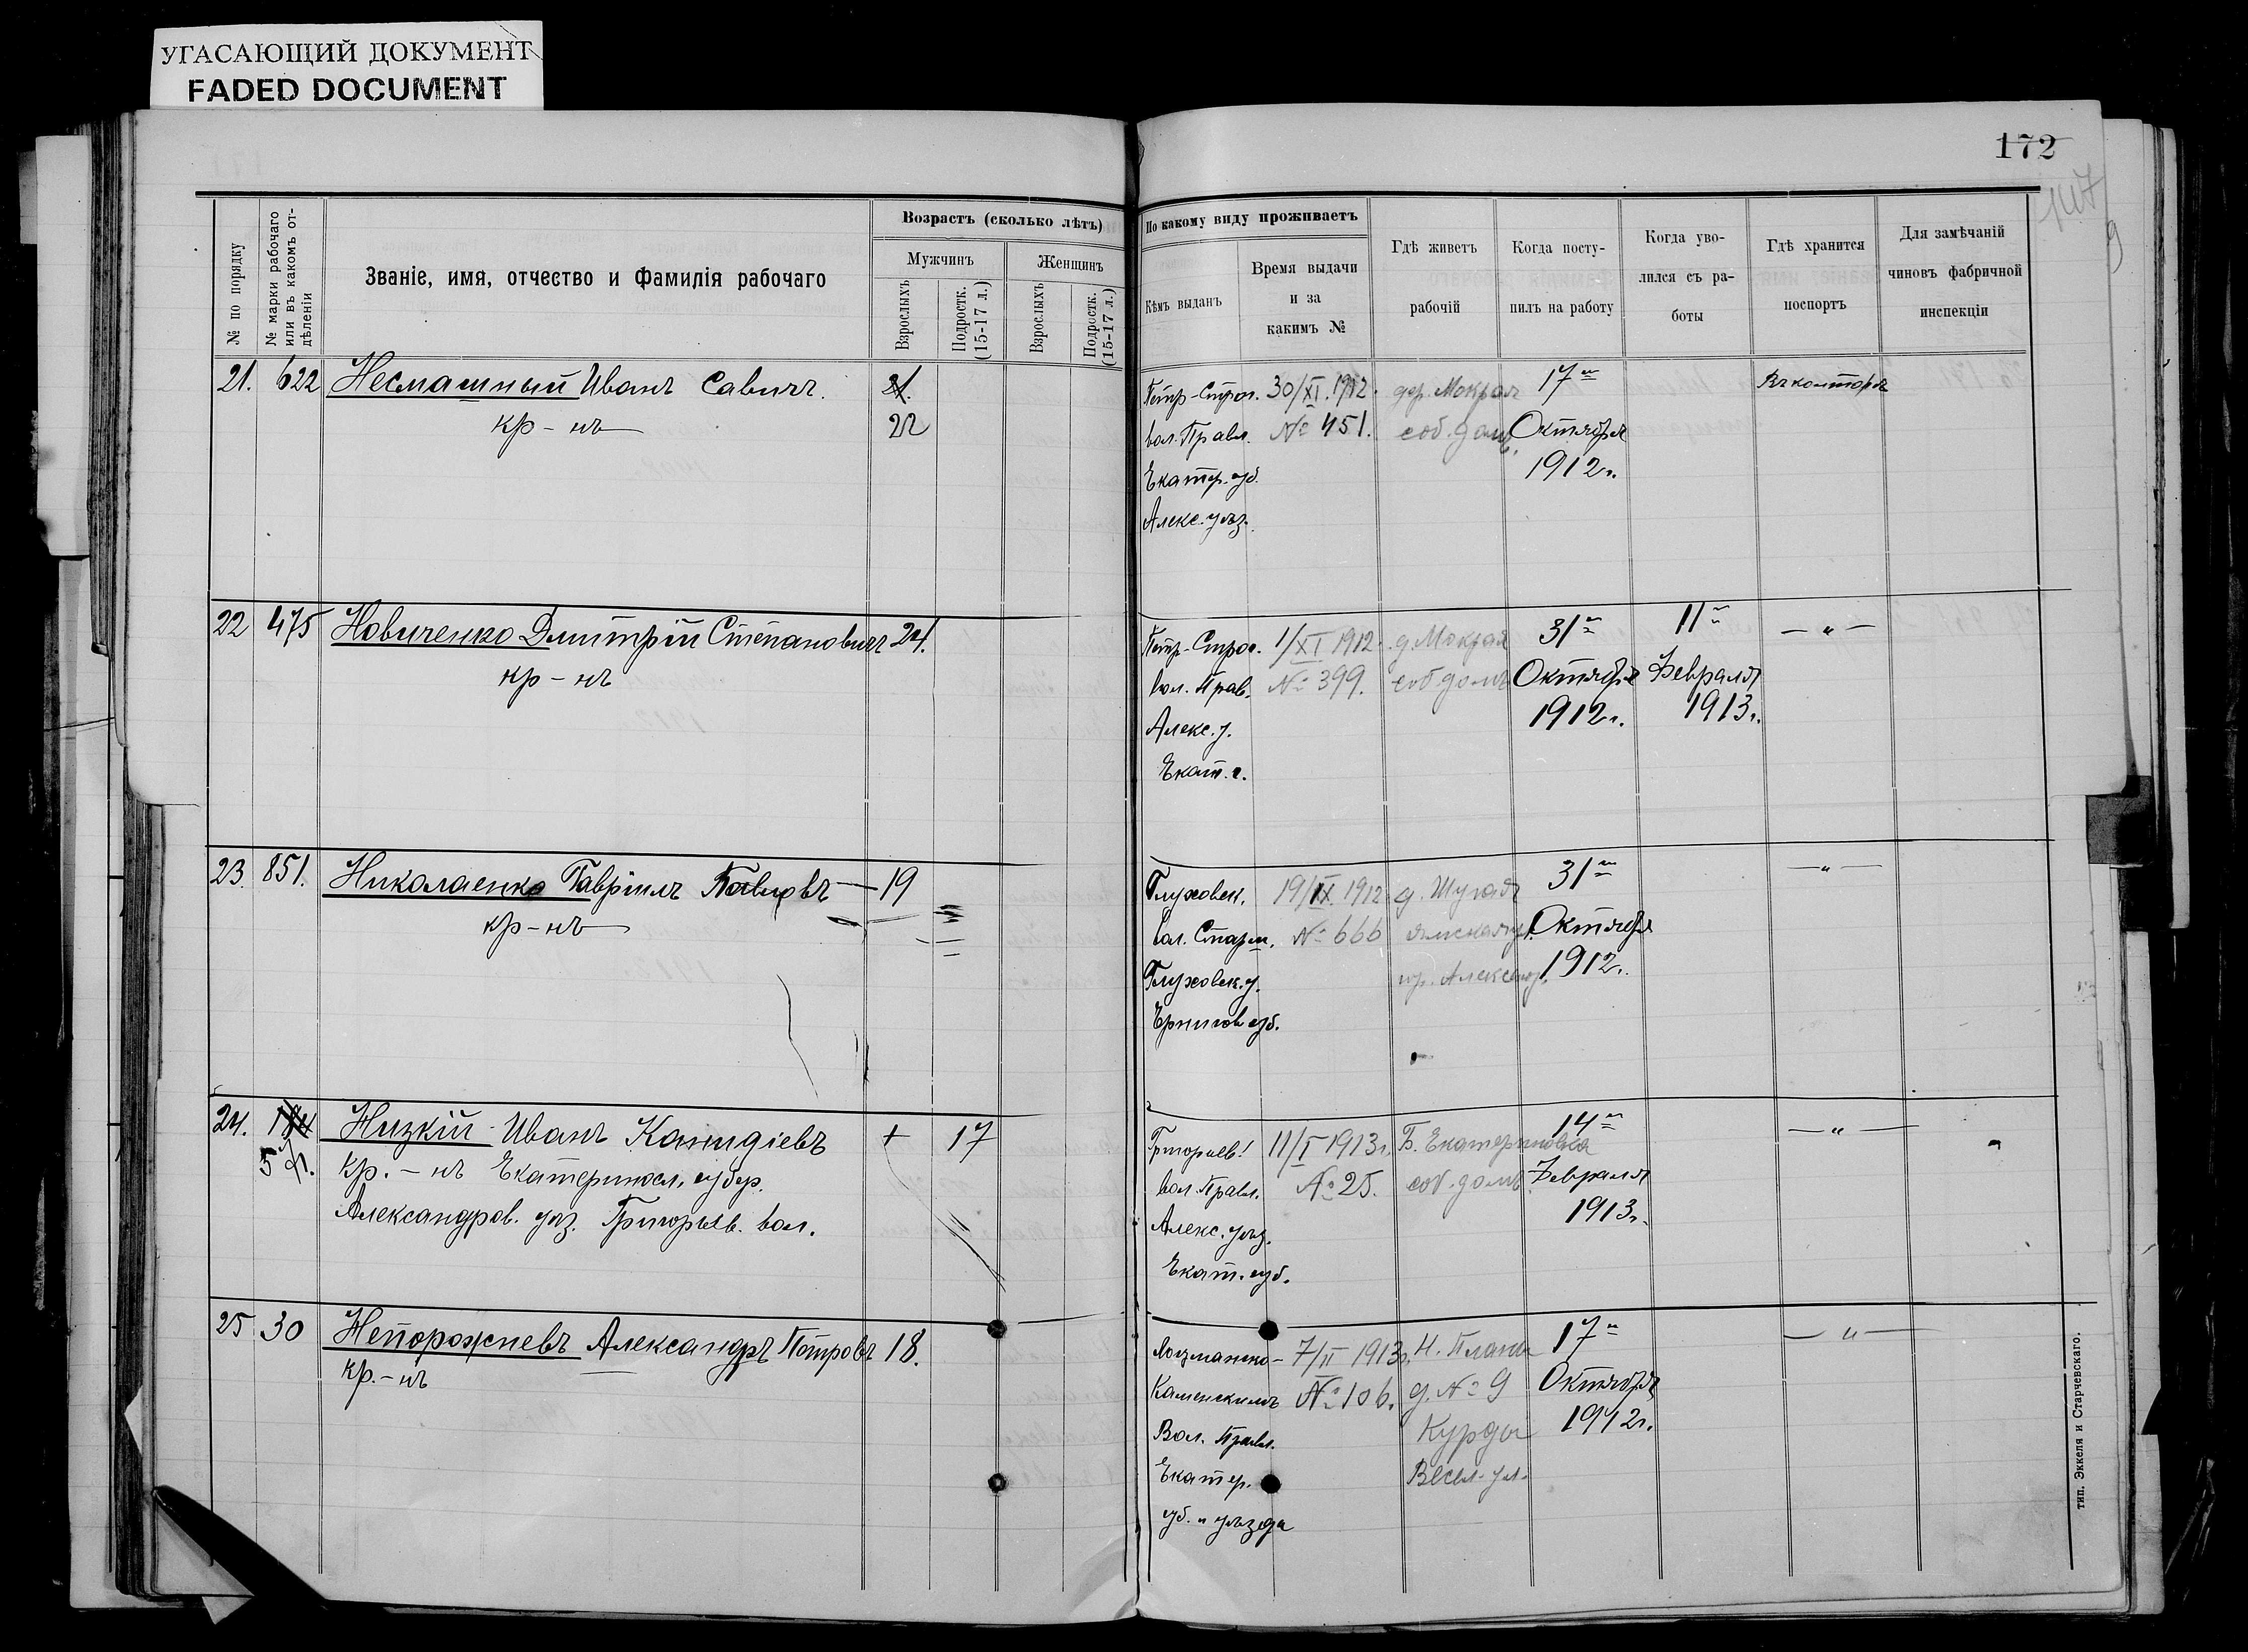 УГАСАЮЩИЙ ДОКУМЕНТ
FADED DOCUMENT
172
147
№ по порядку
№ марки рабочаго
или въ какомъ от-
дѣленіи
Званіе, имя, отчество и Фамилія рабочаго
Возрастъ (сколько лѣтъ)
Мужчинъ
Женщинъ
Взрослыхъ
Подростк.
(15-17 л.)
Взрослыхъ
Подростк.
(15-17 л.)
По какому виду проживаетъ
Кѣмъ выданъ
Время выдачи
и за
какимъ №
Гдѣ живетъ
рабочій
Когда посту-
пилъ на работу
Когда уво-
лился съ ра-
боты
Гдѣ хранится
поспортъ
Для замѣчаній
чиновъ фабричной
инспекціи
21. 622 Несмашный Иванъ Савичъ. 21.
кр-нъ 22
Петр-Строг. 30/XI.1912. дер. Мокрая 17го Въ конторѣ
вол. Правл. № 451. соб. домъ. Октября
Екатер. губ. 1912г.
Алекс. уѣз.
22 475 Новиченко Дмитрій Степановичъ 24.
кр-нъ
Петр-Строг. 1/XI 1912. д. Мокрая 31го 11го — " —
вол. Прав. № 399. соб. домъ Октября Февраля
Алекс. у. 1912г. 1913г.
Екат. г.
23. 851. Николаенко Гавріилъ Павловъ — 19
кр-нъ
Глуховск. 19/IX 1912 д. 31го — " —
вол. Старш. № 666 Октября
Глуховск. у. гор. 1912г.
губ.
24. 184 Низкій Иванъ + 17
571. кр.-нъ Екатеринсл. губер.
Александров. уѣз. Григорьев. вол.
Григорьев. 11/I 1913г. Б. Екатериновка 14го — " —
вол. Правл. № 25. соб. домъ Февраля
Алекс. уѣз. 1913г.
Екат. губ.
25 30 Непорожневъ Александръ Петровъ 18.
кр.-нъ
Лоцманско- 7/II 1913г. Н. Планъ 17го — " —
Каменскимъ № 106. д. № 9 Октября
Вол. Правл. 1912г.
Екатер. ул.
губ. и уѣзда
тип. Эккеля и Старчевскаго.